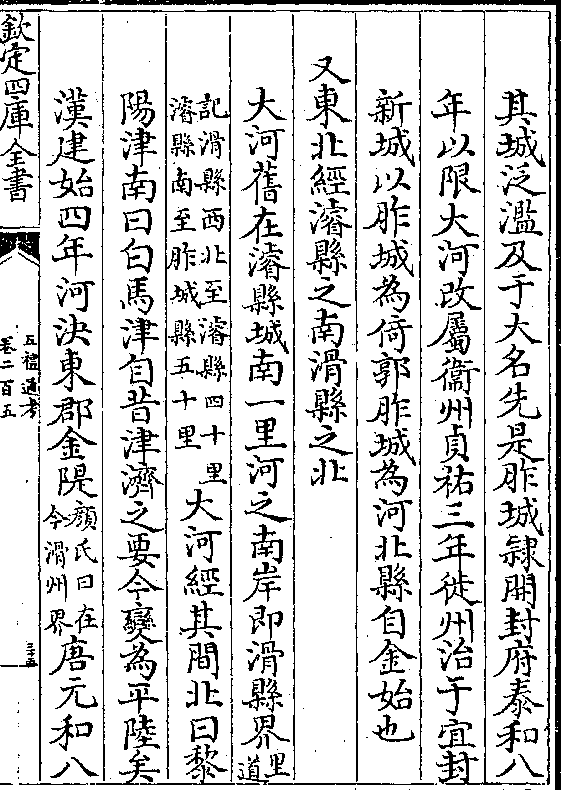 其城泛濫及于大名先是胙城隸開封府泰和八
年以限大河改屬衞州貞祐三年徙州治于宜封
新城以胙城為倚郭胙城為河北縣自金始也
又東北經濬縣之南滑縣之北
大河舊在濬縣城南一里河之南岸即滑縣界道里
記滑縣西北至濬縣四十里
濬縣南至胙城縣五十里
大河經其間北曰黎
陽津南曰白馬津自昔津濟之要今變為平陸矣
漢建始四年河決東郡金隄顏氏曰在
今滑州界
唐元和八
欽定四庫全書
五禮通考
卷二百五
三五